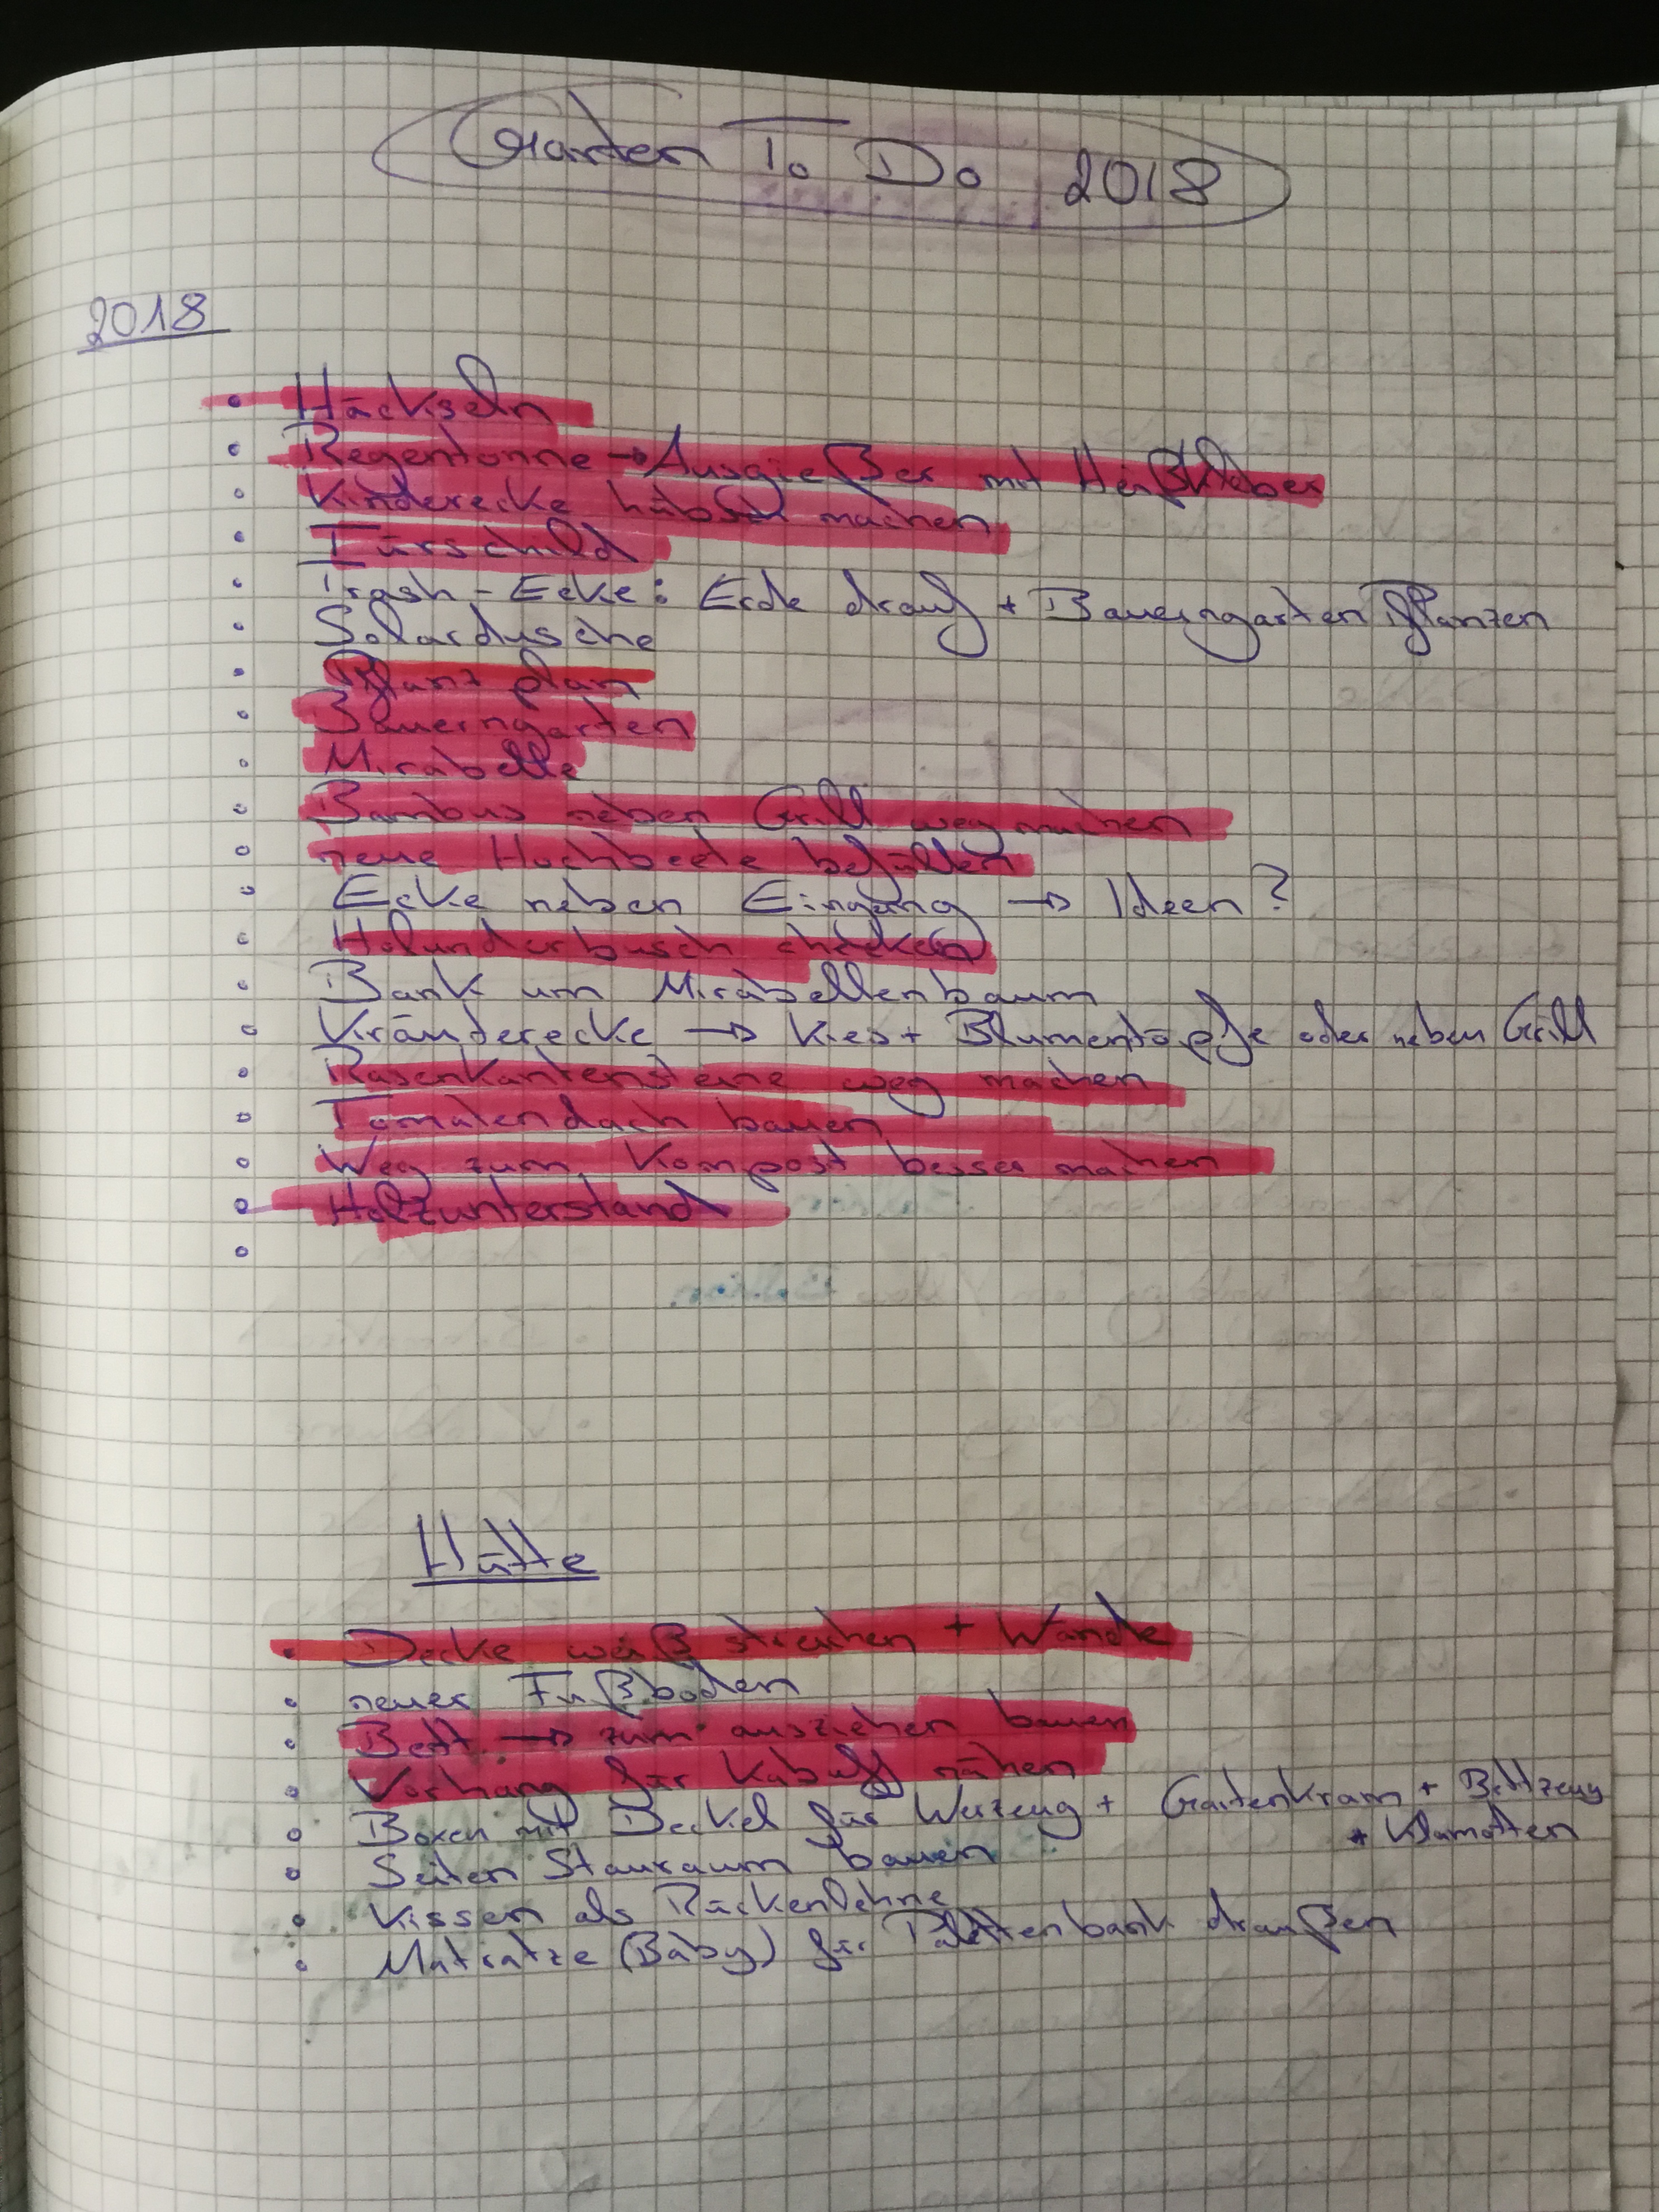 Garten To Do 2018
2018
• Häckseln
• Regentonne → Ausgießer mit Heißkleber
• Kinderecke hübsch machen
• Türschild
• Trash-Ecke: Erde drauf + Bauerngarten Pflanzen
• Solardusche
• Pflanzplan
• Bauerngarten
• Mirabelle
• Bambus neben Grill weg machen
• neue Hochbeete befüllen
• Ecke neben Eingang → Ideen?
• Holunderbusch checken
• Bank um Mirabellenbaum
• Kräuterecke → Kies + Blumentöpfe oder neben Grill
• Rasenkantensteine weg machen
• Tomatendach bauen
• Weg zum Kompost besser machen
• Holzunterstand
•
Hütte
• Decke weiß streichen + Wände
• neuer Fußboden
• Bett → zum ausziehen bauen
• Vorhang für Kabuff nähen
• Boxen mit Deckel für Werzeug + Gartenkram + Bettzeug
+ Klamotten
• Seiten Stauraum bauen
• Kissen als Rückenlehne
• Matratze (Baby) für Palettenbank draußen